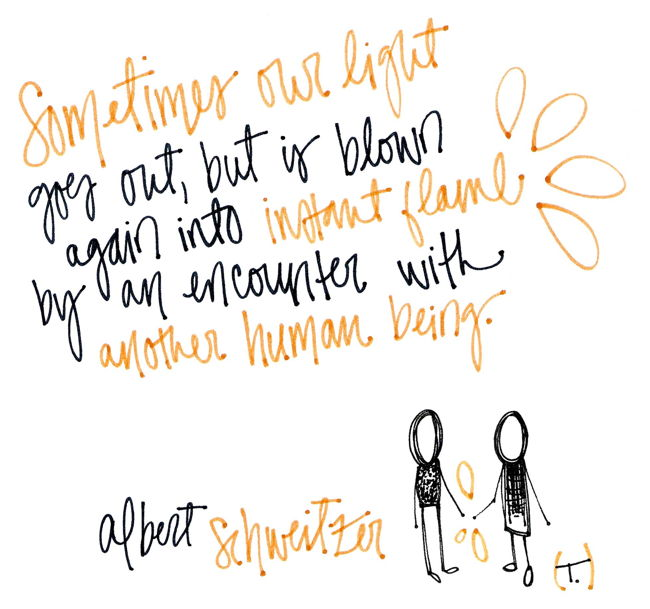 Sometimes our light
goes out, but is blown
again into instant flame
by an encounter with
another human being.
albert schweitzer
(T.)